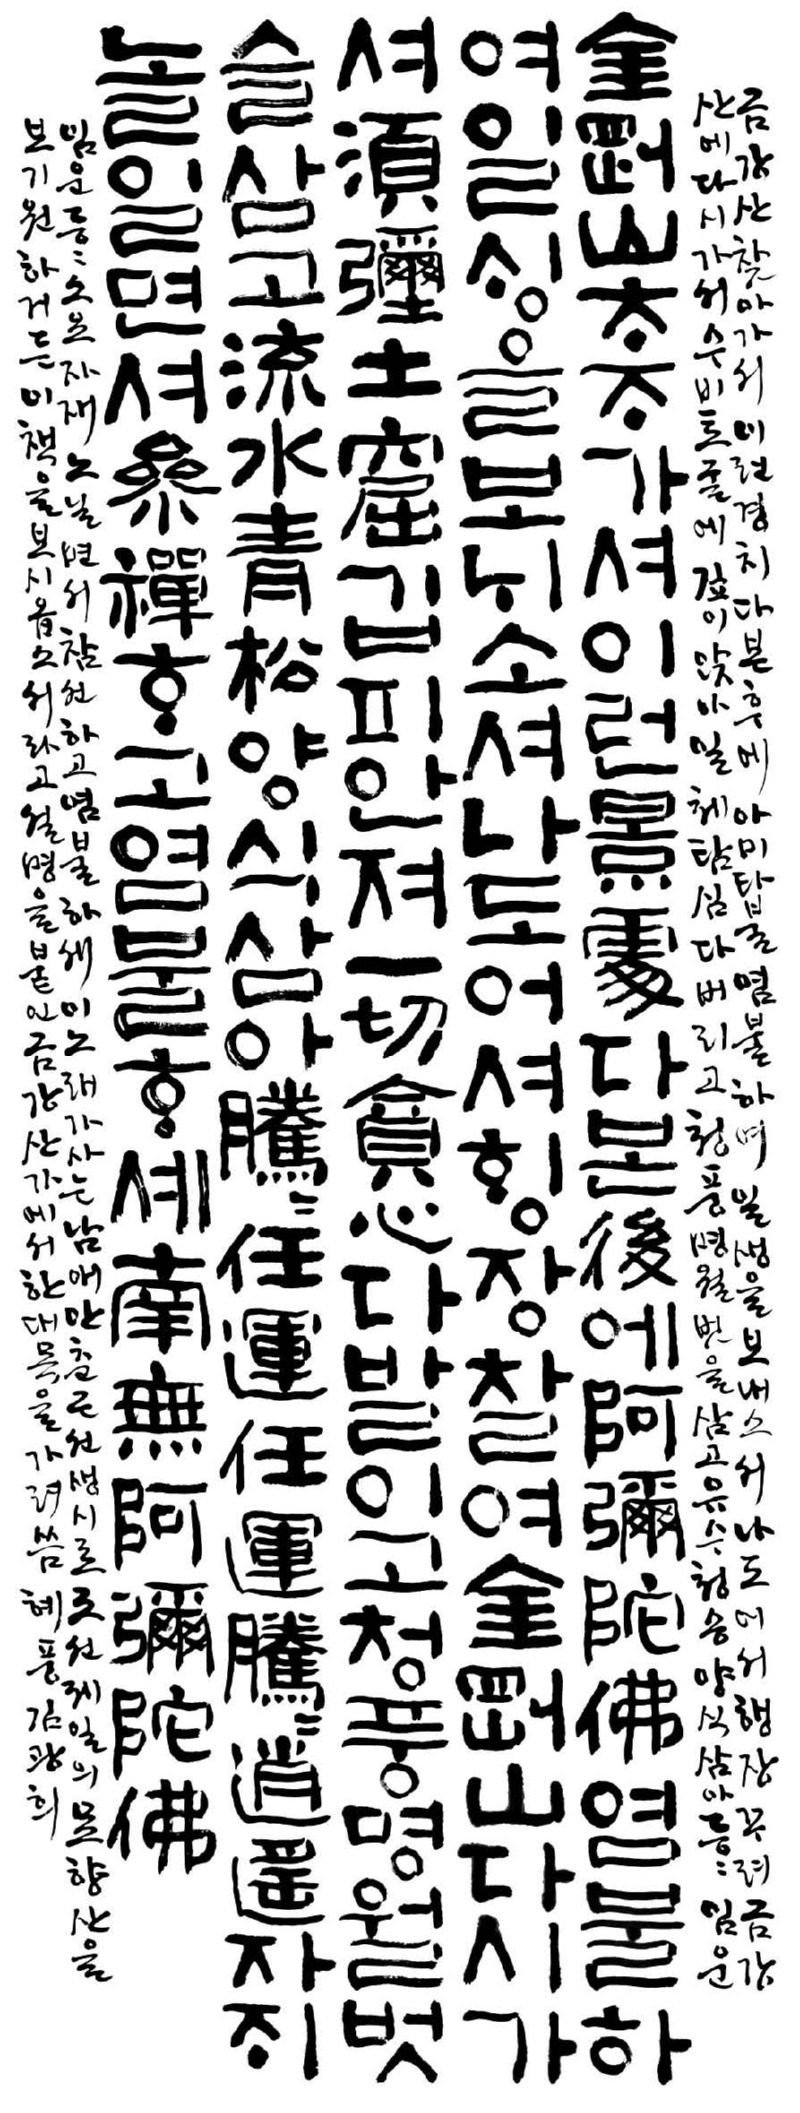 금강산 찾아가서 이런경치 다본후에 아미타불 염불하며 일생을 보내소서 나도어서 행장꾸려 금강
산에 다시가서 수비토굴에 깊이앉아 일체탐심 다버리고 청풍명월 벗을삼고 유수청송 양식삼아 등〃 임운
金剛山ᄎᆞᄌᆞ가셔이런景處다본後에阿彌陀佛염불하
여일싱을보ᄂᆡ소셔나도어셔ᄒᆡᆼ장찰여金剛山다시가
셔須彌土窟깁피안져一切貪心다발이고청풍명월벗
슬삼고流水靑松양식삼아騰〃任運任運騰〃逍遙자ᄌᆡ
놀일면셔叅禪ᄒᆞ고염불ᄒᆞ셰南無阿彌陀佛
임운등〃 소요자재 노닐면서 참선하고 염불하세 이노래가사는 남애안춘근선생시로 조선제일의 묘향산을
보기원하거든 이책을 보시옵소서라고 설명을 붙인 금강산가에서 한대목을 가려씀 혜풍 김광희